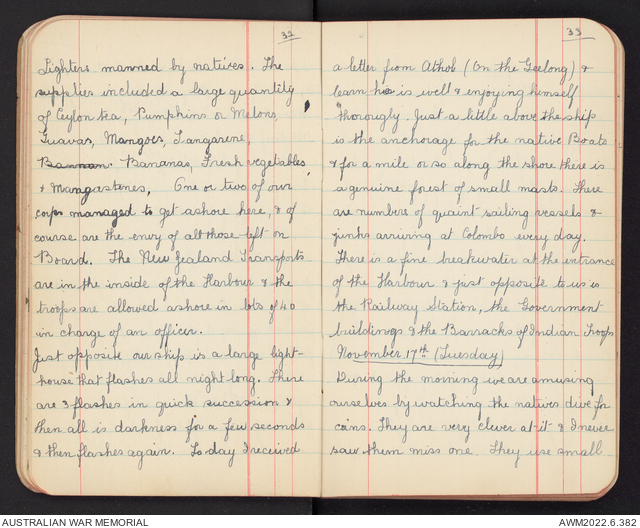 32
Lighters manned by natives. The
supplies included a large quantity
of Ceylon tea, Pumpkins or Melons,
Guavas, Mangoes, Tangarene,
Bannan Bananas, Fresh vegetables,
& Mangastenes, One or two of our
corps managed to get ashore here, & of
course are the envy of all those left on
Board. The New Zealand Transports
are in the inside of the Harbour & the
troops are allowed ashore in lots of 40
in charge of an officer.
Just opposite our ship is a large light-
house that flashes all night long. There
are 3 flashes in quick succession &
then all is darkness for a few seconds
& then flashes again. To day I received
33
a letter from Athol (On the Geelong) &
learn he is well & enjoying himself
thorougly. Just a little above the ship
is the anchorage for the native Boats
& for a mile or so along the shore there is
a genuine forest of small masts. There
are numbers of quaint sailing vessels &
junks arriving at Colombo every day.
There is a fine breakwater at the entrance
of the Harbour & just opposite to us is
the Railway Station, the Government
buildings & the Barracks of Indian Troops
November 17th (Tuesday)
During the morning we are amusing
ourselves by watching the natives dive for
coins. They are very clever at it & I never
saw them miss one. They use small
AUSTRALIAN WAR MEMORIAL
AWM2022.6.382